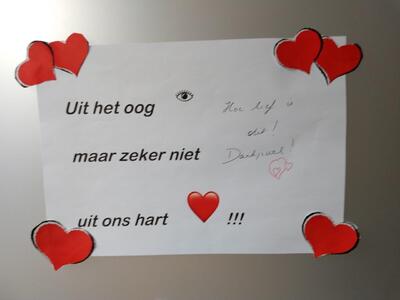 Uit het oog 👁
maar zeker niet
uit ons hart ❤ !!!
Hoe lief is
dit!
Dankjewel!